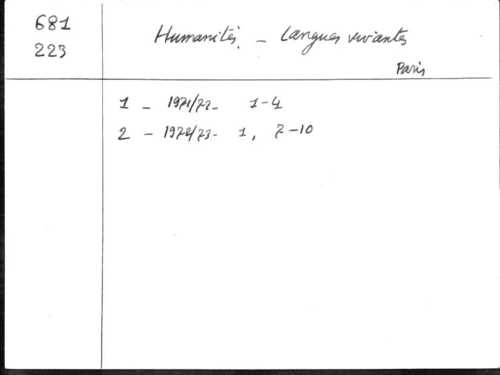 681
223
Humanités. - Langues vivantes
Paris
1 - 1971/72- 1-4
2 - 1972/73- 1, 7-10